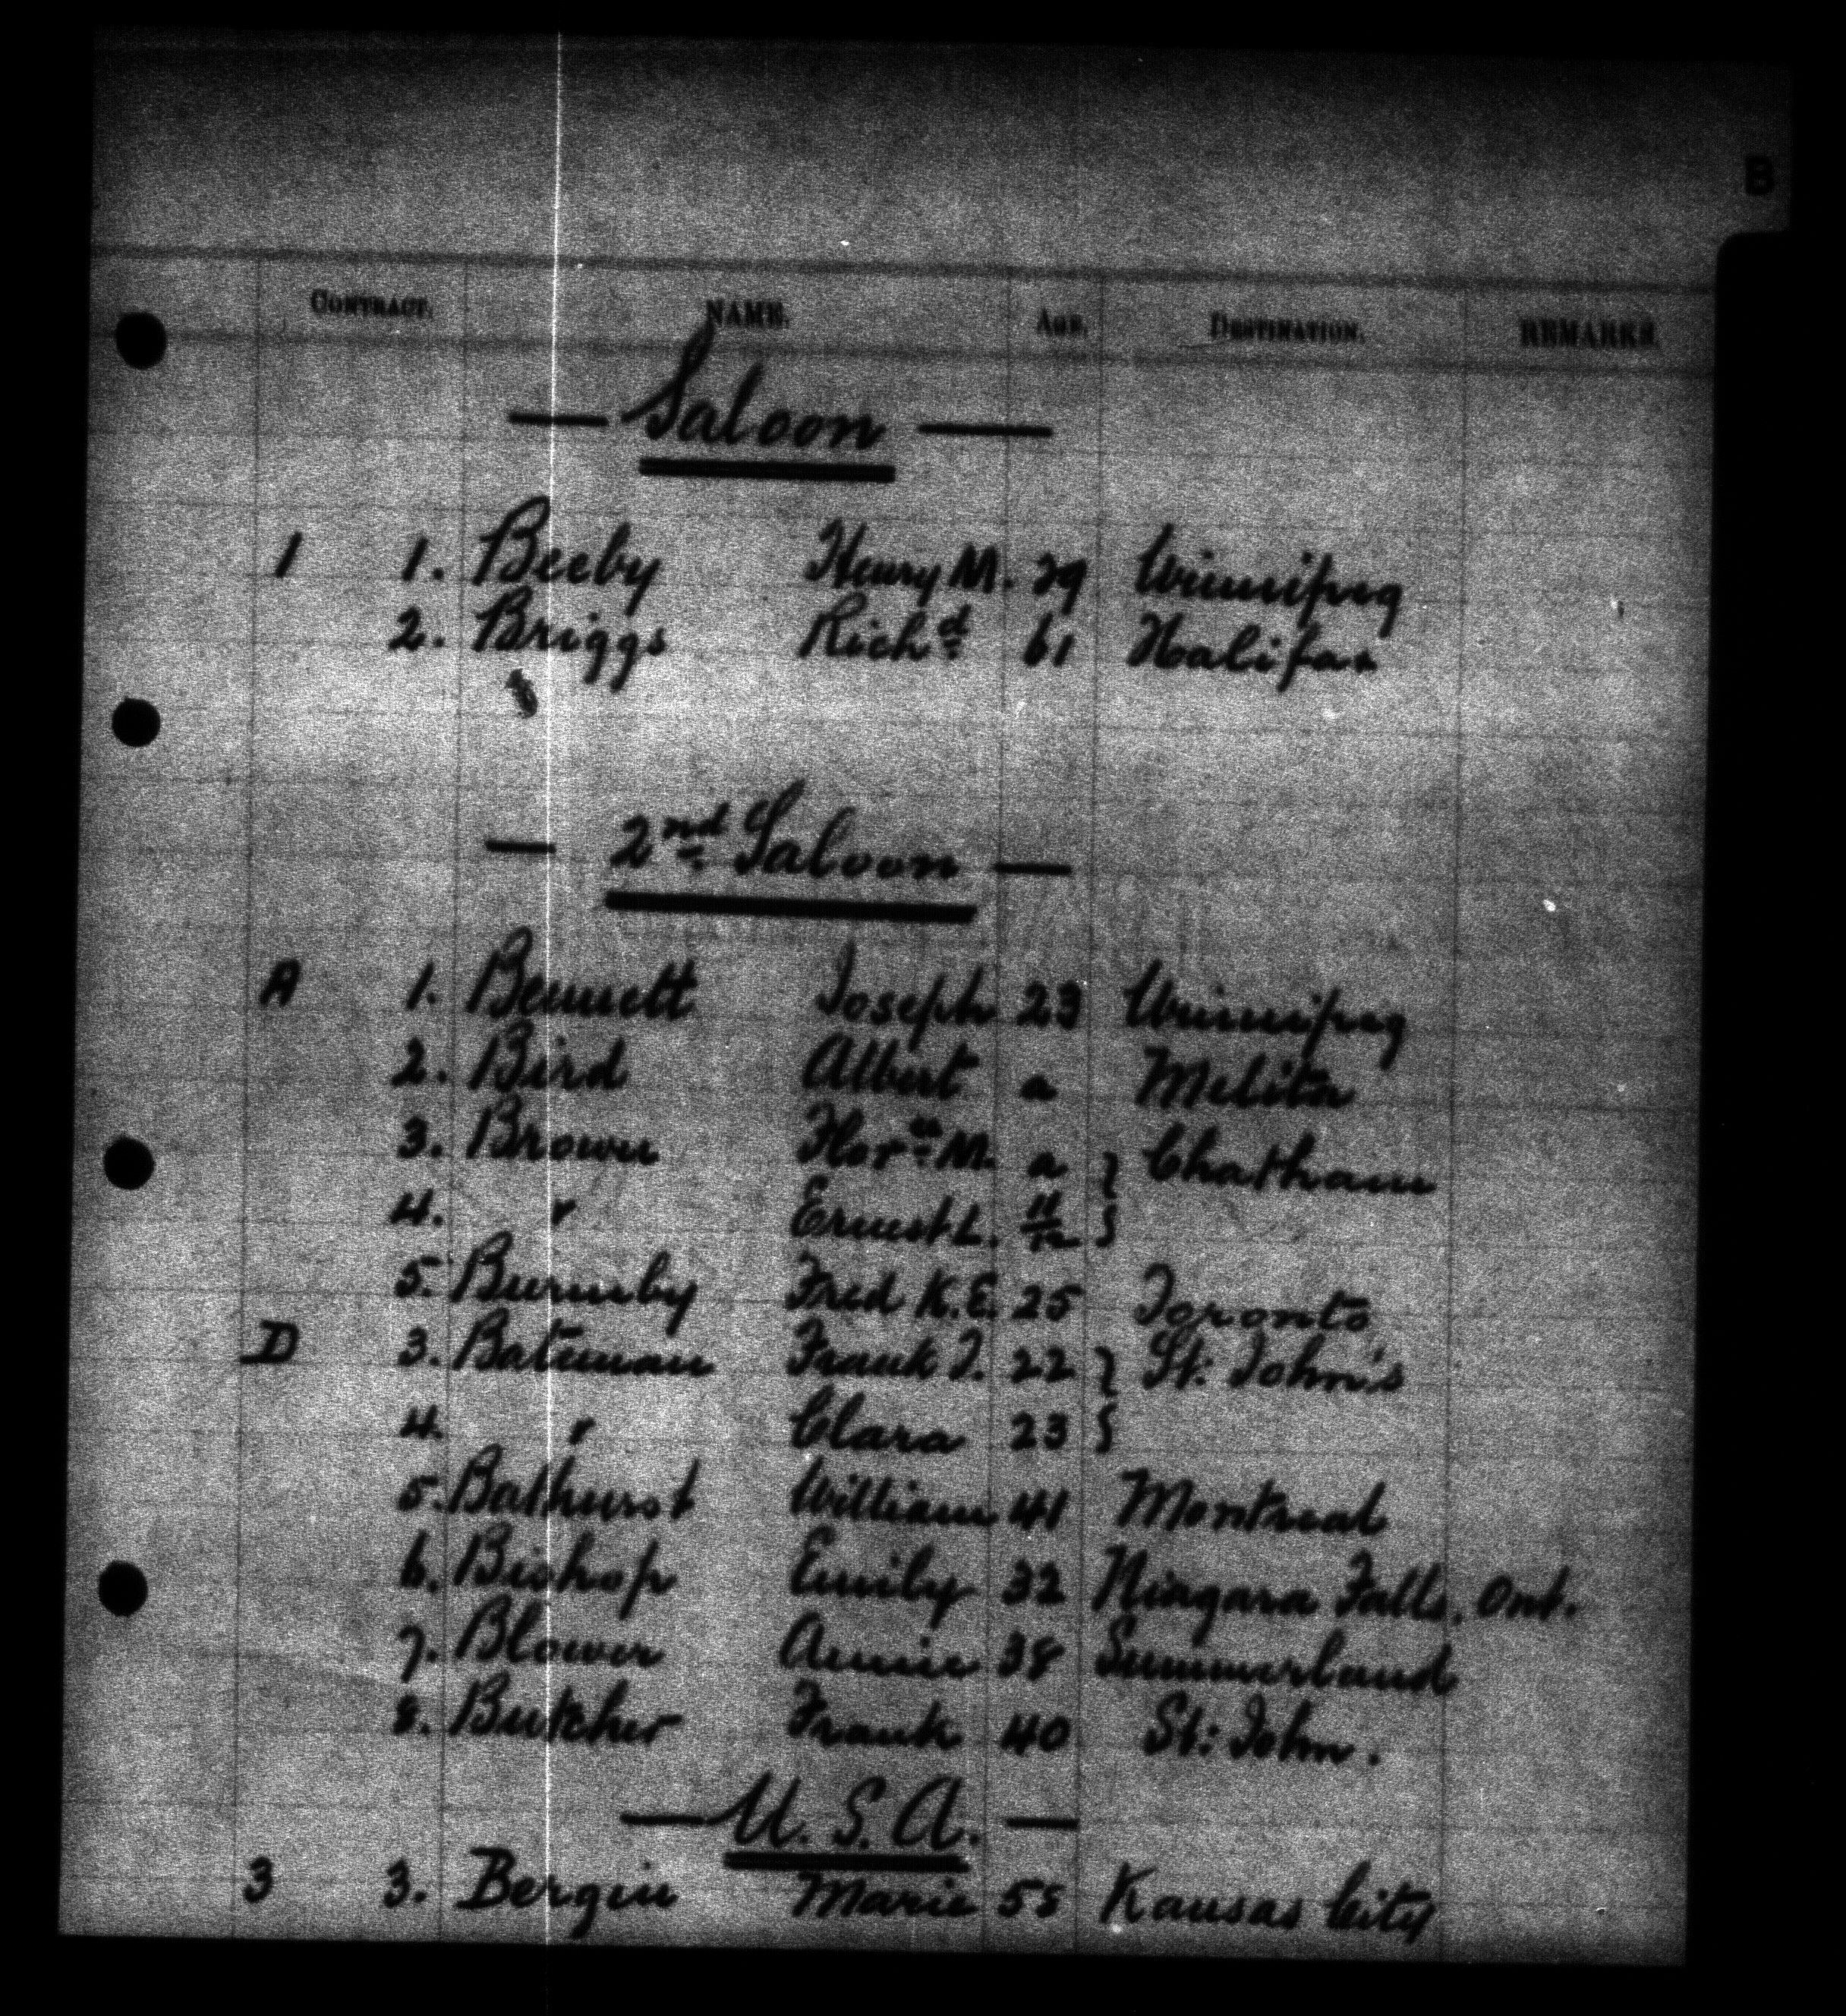 B
CONTRACT. NAME. AGE. DESTINATION. REMARKS.
— Saloon —
1 1. Beeby Henry M. 29 Winnipeg
2. Briggs Richd 61 Halifax
— 2nd Saloon —
A 1. Bennett Joseph 23 Winnipeg
2. Bird Albert a Melita
3. Brown Florce M. a } Chatham
4. " Ernest L. 11/12 }
5. Burnaby Fred K.E. 25 Toronto
D 3. Bateman Frank J. 22 } St: John's
4. " Clara 23 }
5. Bathurst William 41 Montreal
6. Bishop Emily 32 Niagara Falls, Ont.
7. Blower Annie 38 Summerland
8. Butcher Frank 40 St: John.
— U. S. A. —
3 3. Bergin Marie 55 Kansas City